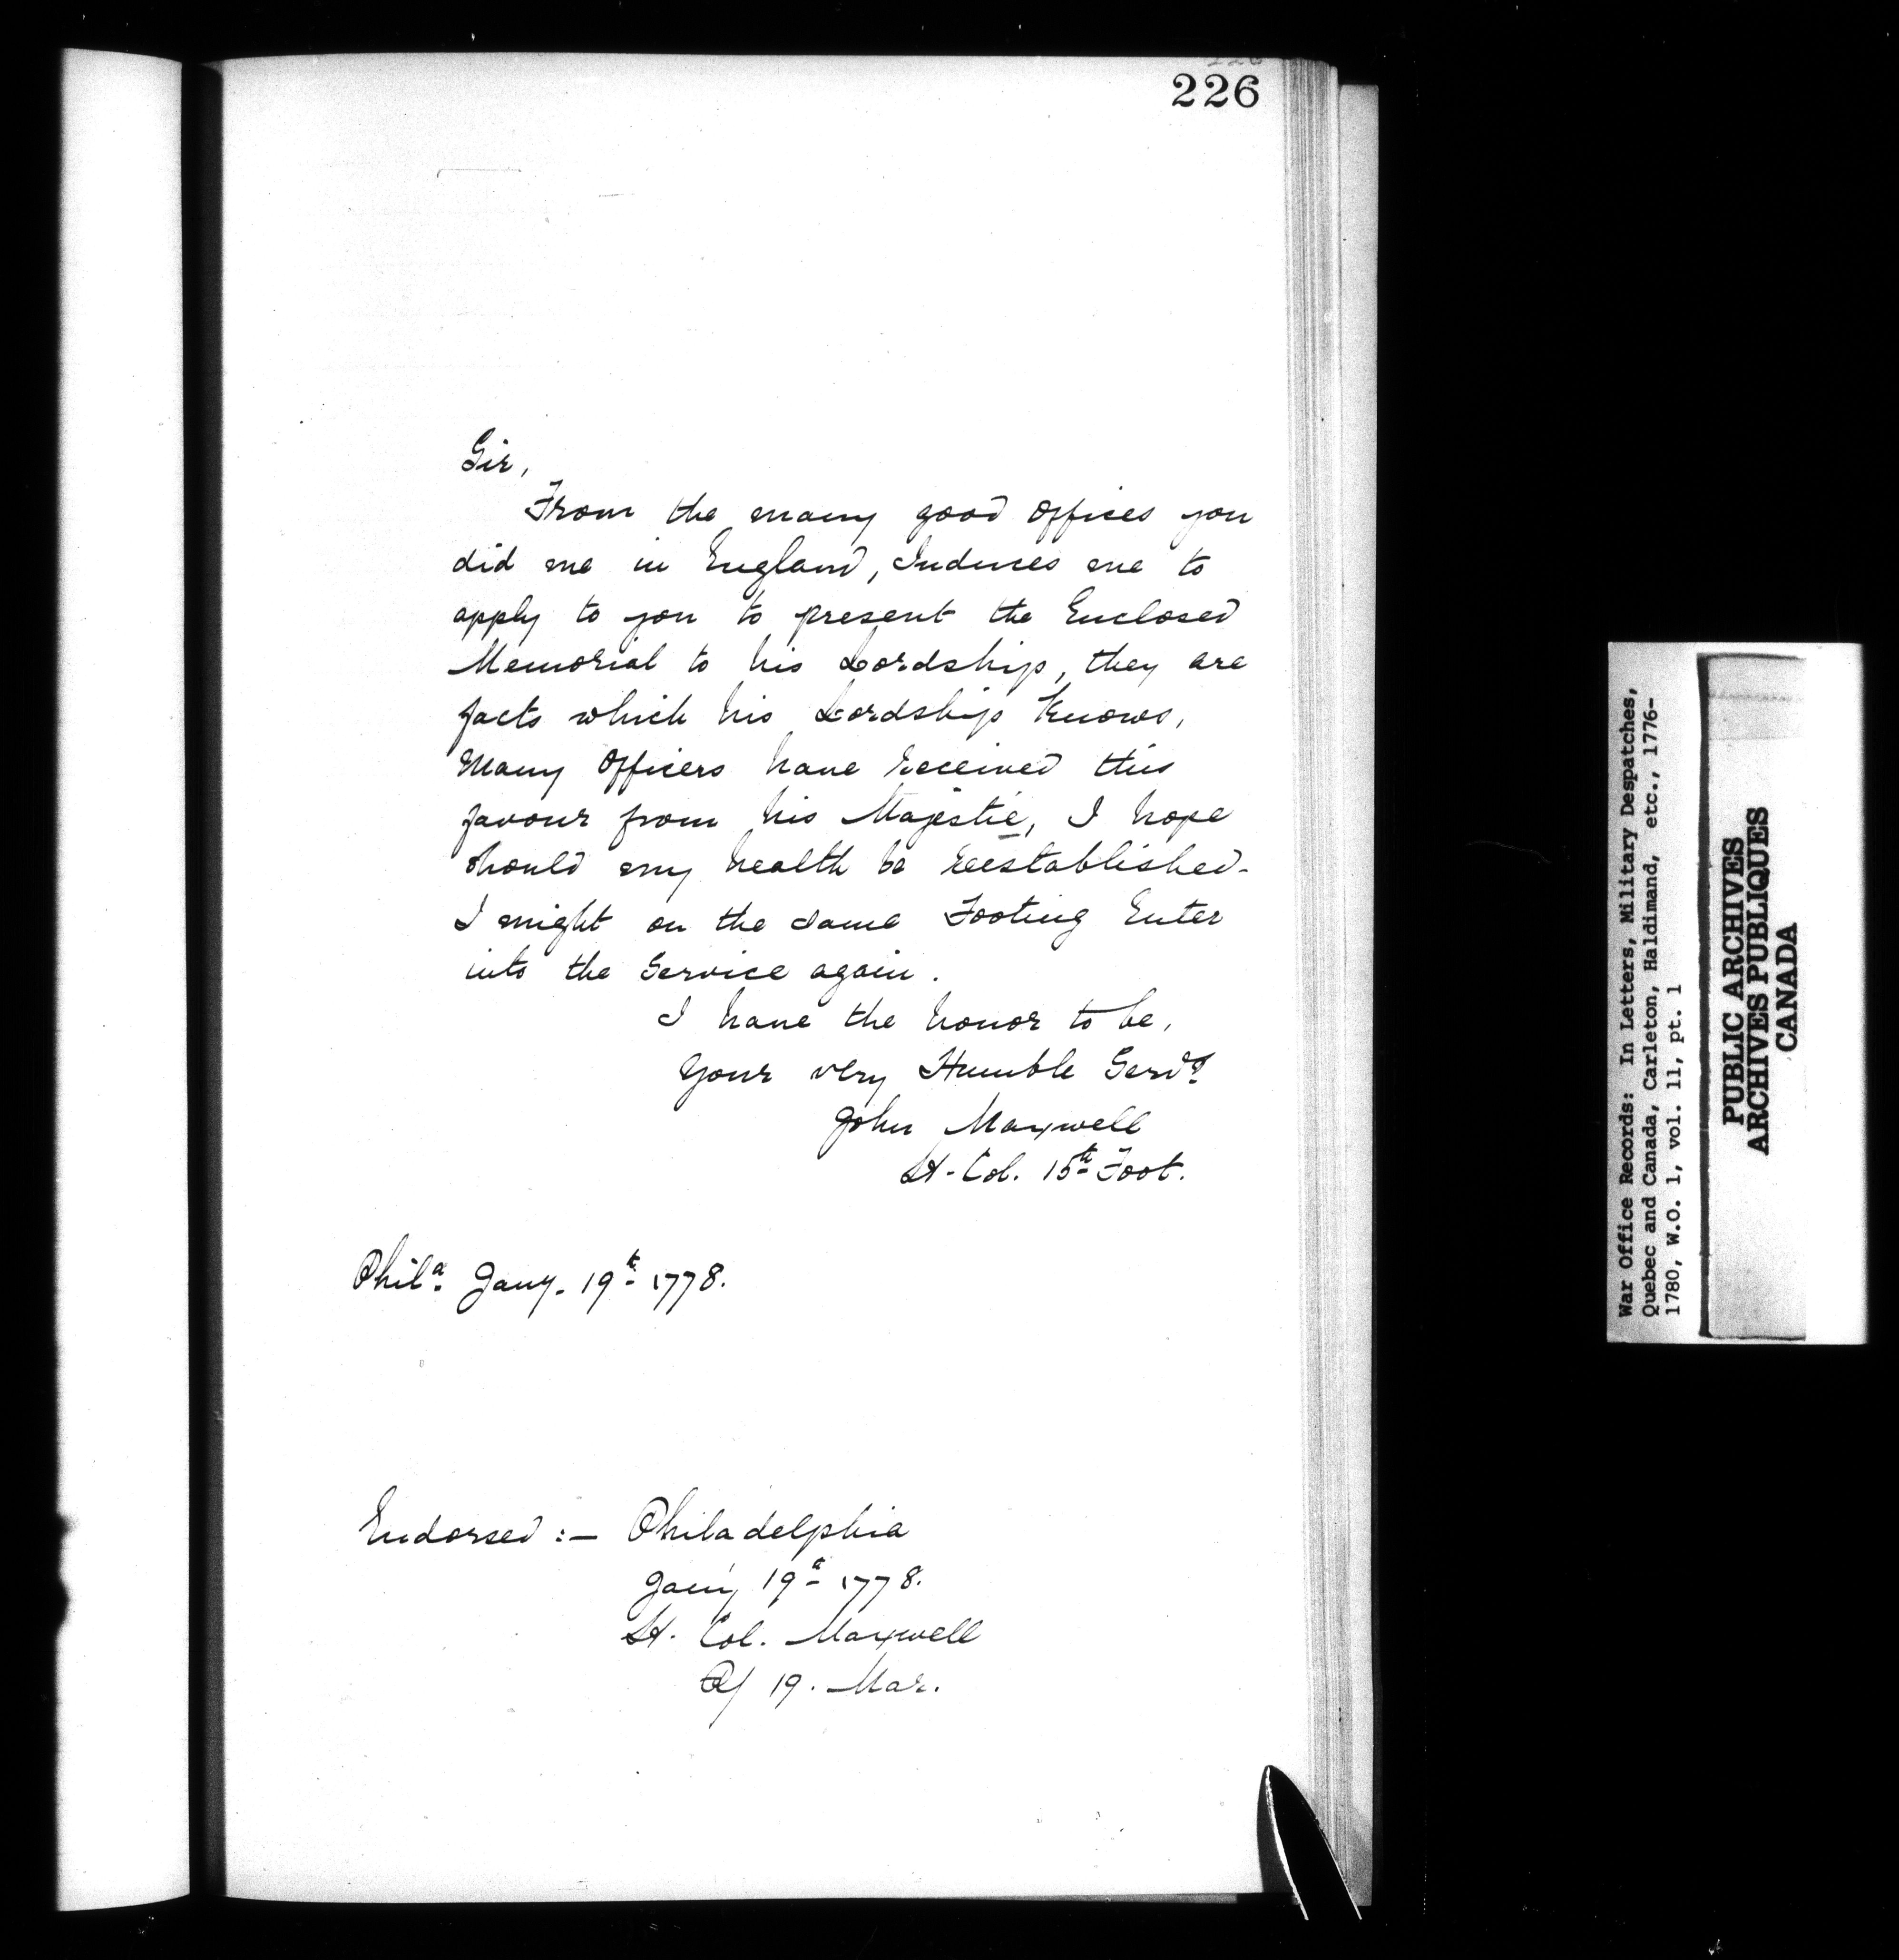 226
Sir,
From the many good offices you
did me in England, Induces me to
apply to you to present the Enclosed
Memorial to his Lordship, they are
facts which his Lordship Knows,
Many Officers have received this
favour from his Majestie, I hope
should my health be reestablished-
I might on the same Footing Enter
into the Service again.
I have the honor to be,
Your very Humble Servt.
John Maxwell
Lt-Col. 15th Foot.
Phila. Jany. 19th 1778.
Endorsed :- Philadelphia
Jany 19th 1778.
Lt. Col. Maxwell
19. Mar.
War Office Records: In Letters, Military Despatches,
Quebec and Canada, Carleton, Haldimand, etc., 1776-
1780, W.O. 1, vol. 11, pt. 1
PUBLIC ARCHIVES
ARCHIVES PUBLIQUES
CANADA